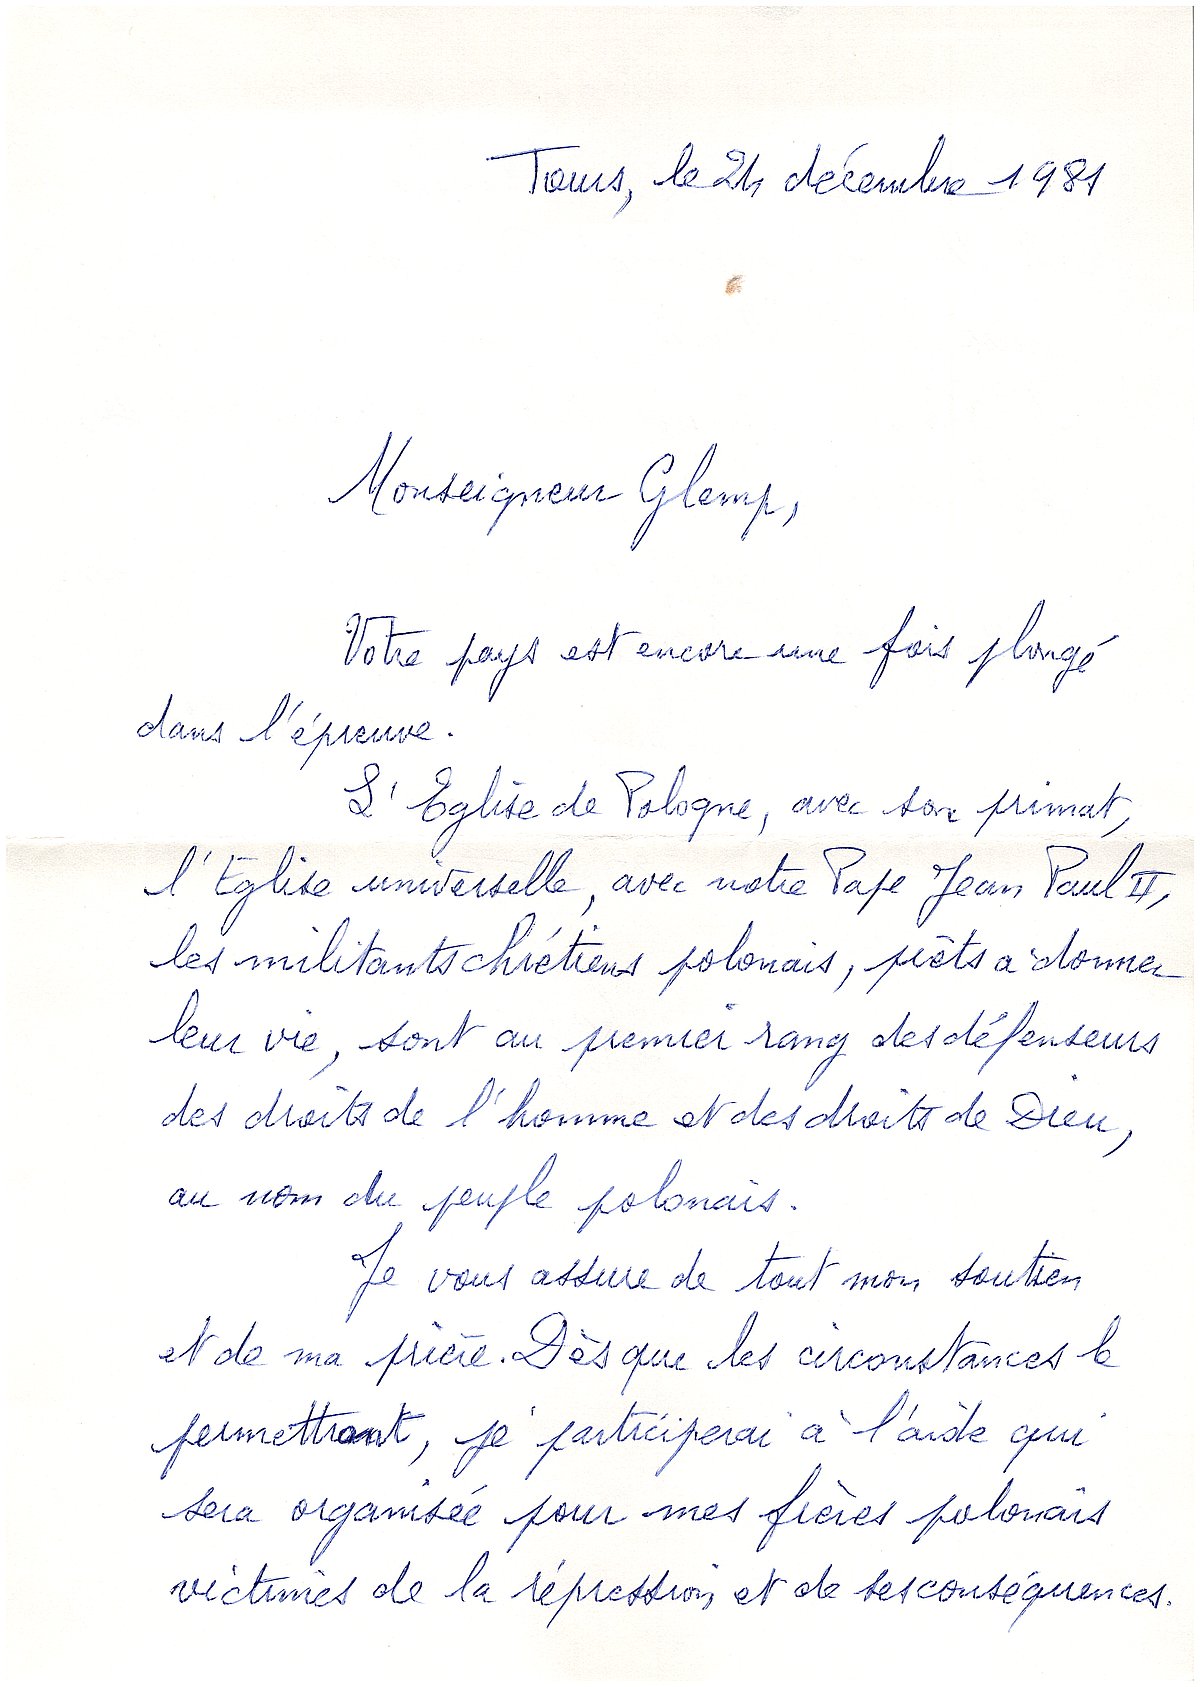 Tours, le 24 décembre 1981
Monseigneur Glemp,
Votre pays est encore une fois plongé
dans l'épreuve.
L'Eglise de Pologne, avec son primat,
l'Eglise universelle, avec notre Pape Jean Paul II,
les militants chrétiens polonais, prêts à donner
leur vie, sont au premier rang des défenseurs
des droits de l'homme et des droits de Dieu,
au nom du peuple polonais.
Je vous assure de tout mon soutien
et de ma prière. Dès que les circonstances le
permettront, je participerai à l'aide qui
sera organisée pour mes frères polonais
victimes de la répression et de ses conséquences.